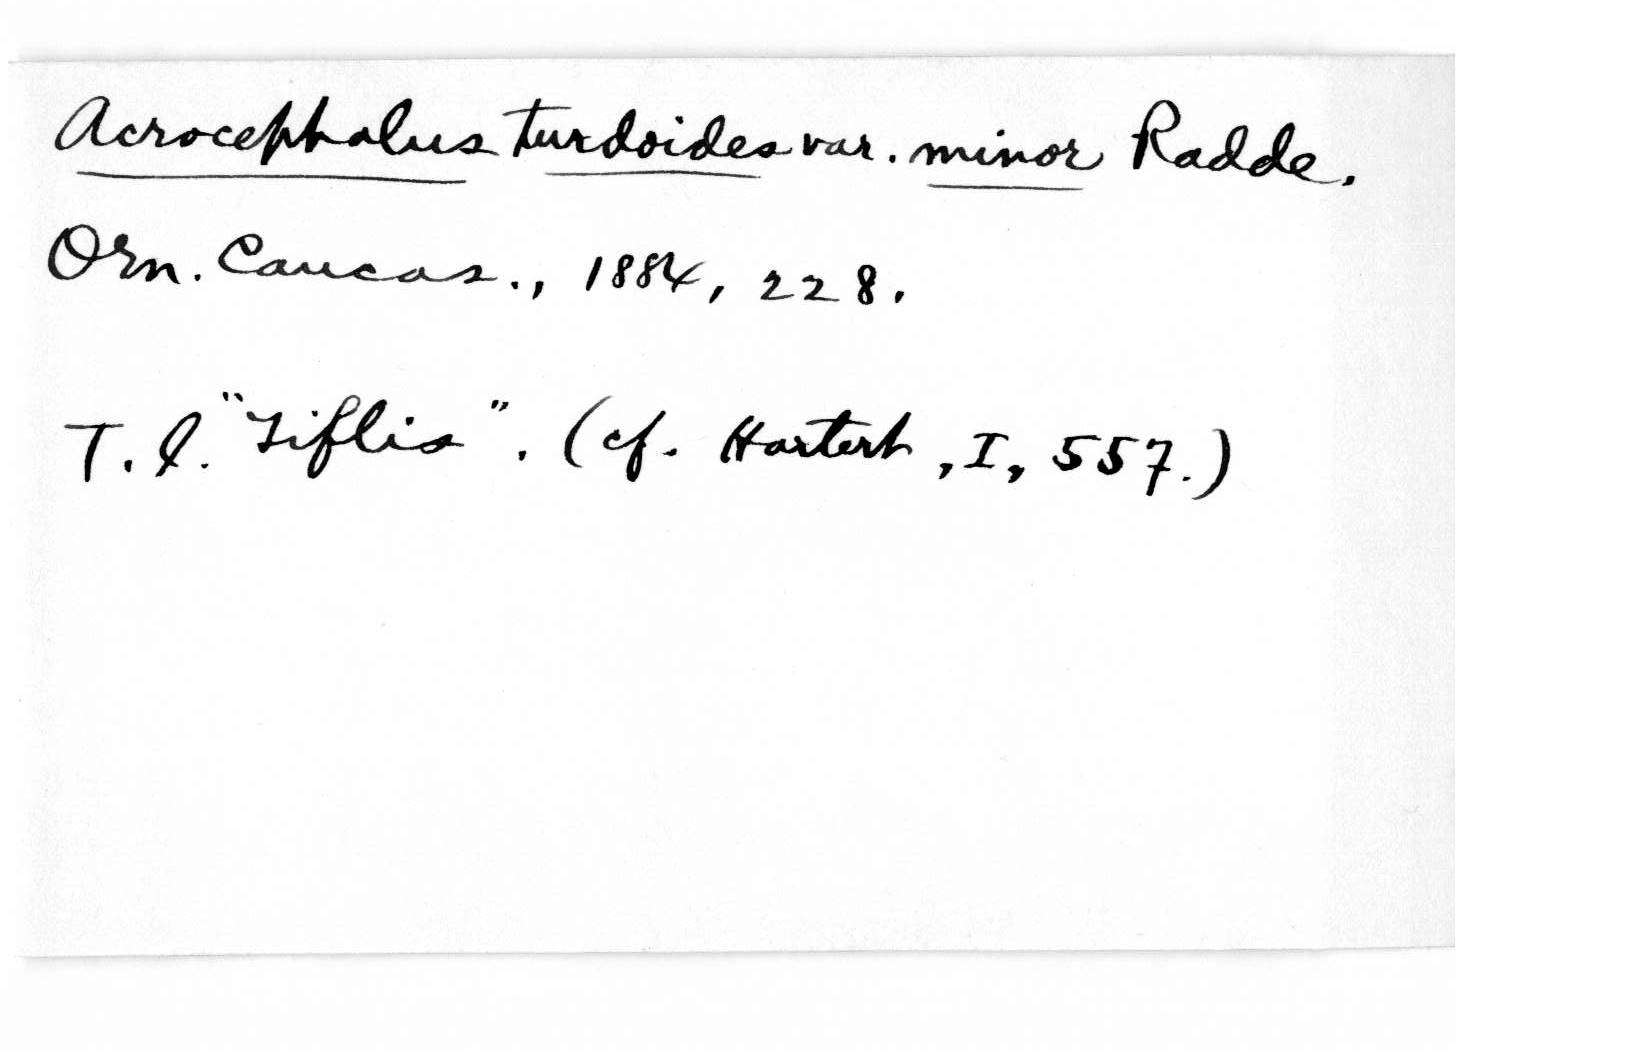 Acrocephalus turdoides var. minor Radde.
Orn. Caucas., 1884, 228.
T. l. "Tiflis". (cf. Hartert, I, 557.)